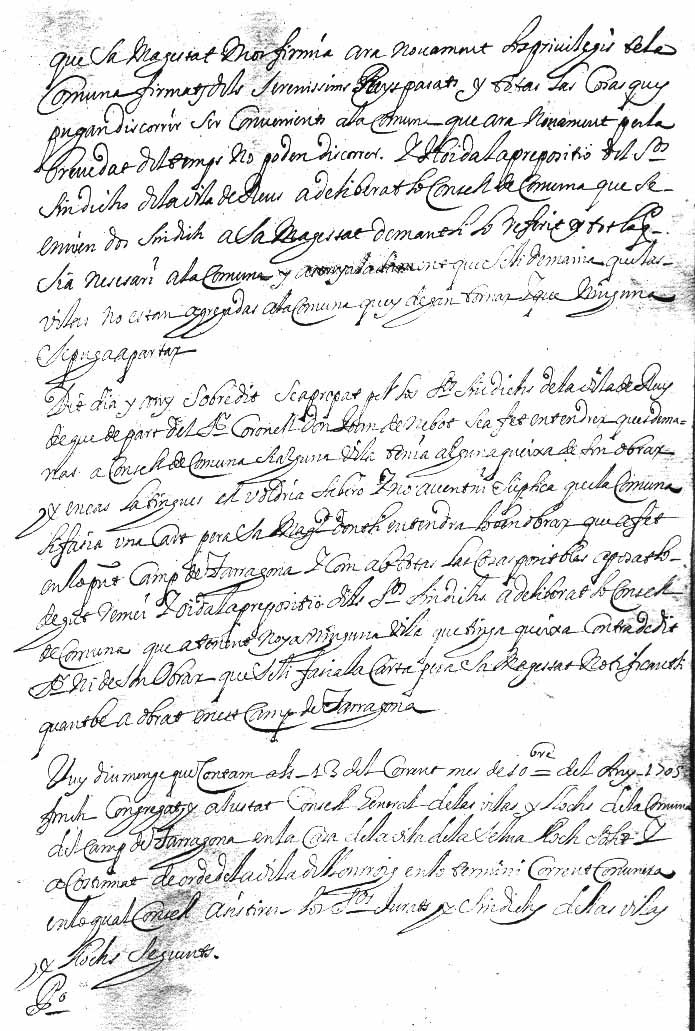 que Sa Magestat Nos firmia ara novament los privilegis de la
Comuna firmats dels Serenissims Reys pasats, y totas las Cosas que y
pugan discorrir Ser Convenients a la Comuna que ara Novament per la
brevedat del temps No poden discorrer. Y Hoida la prepositio del Srs
Sindichs de la vila de Reus a deliberat lo Consell de Comuna que Se
envien dos Sindich a Sa Magestat demanthi lo referit y tot laq-
Sia nesesari a la Comuna y que Selli demania que las
vilas No estan agregadas a la Comuna que y degan tornar Y que Ninguna
Se puga apartar
Dit dia y any Sobredit Sea propat per los Srs Sindichs de la vila de Reus
de que de part del Sr Coronell Don Joan de Nebot Sea fet entendrer que dema-
nas a Consell de Comuna Si alguna vila tenia alguna queixa de Son obrar
y en cas la tingues ell voldria Sabero Y no avent ni Suplica que la Comuna
li fasia una Cart pera Sa Magd donthi entendra lo bon obrar que a fet
en lo pnt Camp de Tarragona Y Com ab totas las Cosas posibles a pesat lo
degut remei Y oida la prepositio dels Srs Sindichs a deliberat lo Consell
de Comuna que atenent No ya Ninguna vila que tinga queixa Contra de dit
Sr Ni de Son Obrar que Selli fasia la Carta pera Sa Magestat Notificantli
quant be a obrat en est Camp de Tarragona
Vuy diumenge que Contam als 13 del Corrent mes de 10bre del Any 1705
fonch Congregat y aiustat Consell General de las vilas y Llochs de la Comuna
del Camp de Tarragona en la Casa de la vila de la Selva lloch Y
a Costumat de orde de la vila del Monroig en lo termini Corrent Comunera
en lo qual Consell asistiren los Srs Jurats y Sindichs de las vilas
y Llochs Seguents.
Po